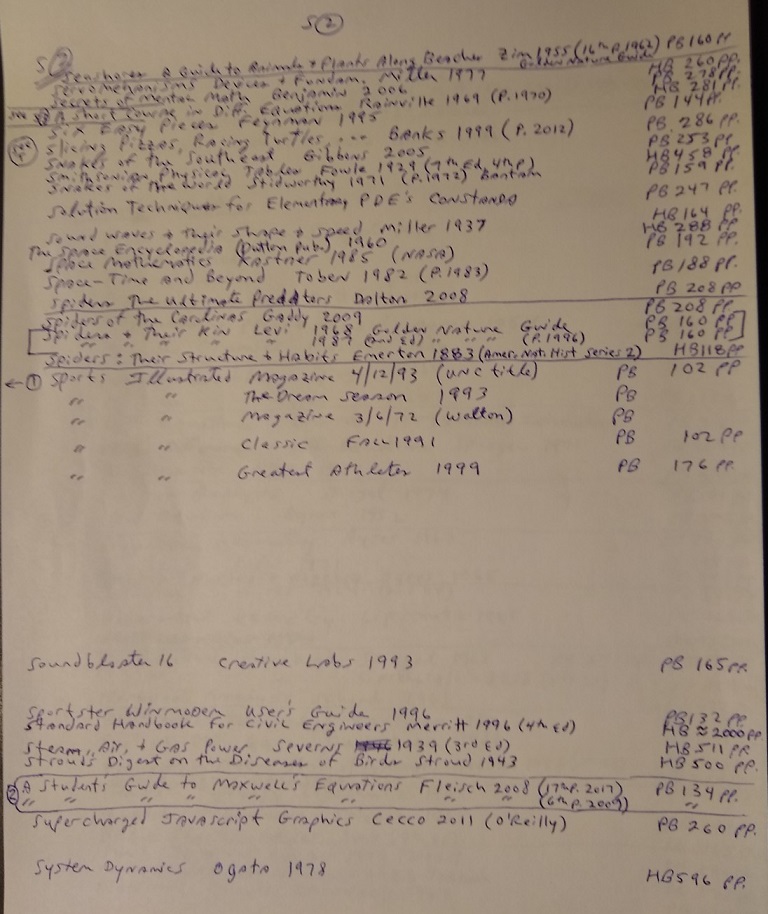 S(2)
S(2)
Seashores A Guide to Animals & Plants Along Beaches Zim 1955 (16th P. 1962) PB 160 PP
Golden Nature Guide
Servomechanisms Devices & Fundam. Miller 1977 HB 260 PP.
Secrets of Mental Math Benjamin 2006 PB 278 PP.
A Short Course in Diff Equations Rainville 1969 (P. 1970) HB 281 PP.
Six Easy Pieces Feynman 1995 PB 144 PP.
Slicing Pizzas, Racing Turtles, ... Banks 1999 (P. 2012) PB 286 PP.
Snakes of the Southeast Gibbons 2005 PB 253 PP
Smithsonian Physical Tables Fowle 1929 (7th Ed, 4th P) HB 458 PP.
Snakes of the World Stidworthy 1971 (P. 1972) Bantam PB 159 PP.
Solution Techniques for Elementary PDE's Constanda PB 247 PP.
Sound waves & their shape & speed Miller 1937 HB 164 PP.
The Space Encyclopedia (Dutton Pubs) 1960 HB 288 PP.
Space Mathematics Kastner 1985 (NASA) PB 192 PP.
Space-Time and Beyond Toben 1982 (P. 1983) PB 188 PP.
Spiders The Ultimate Predators Dalton 2008 PB 208 PP
Spiders of the Carolinas Gaddy 2009 PB 208 PP.
Spiders & Their Kin Levi 1968 Golden Nature Guide PB 160 PP.
" " " " 1987 (2nd Ed) " " " (P. 1996) PB 160 PP.
Spiders: Their Structure & Habits Emerton 1883 (Amer. Nat. Hist Series 2) HB 118 PP
← (1) Sports Illustrated Magazine 4/12/93 (UNC title) PB 102 PP
" " The Dream Season 1993 PB
" " Magazine 3/6/72 (Walton) PB
" " Classic Fall 1991 PB 102 PP
" " Greatest Athletes 1999 PB 176 PP.
Soundblaster 16 Creative Labs 1993 PB 165 PP.
Sportster Winmodem User's Guide 1996 PB 132 PP.
Standard Handbook for Civil Engineers Merritt 1996 (4th Ed) HB ≈ 2000 PP
Steam, Air, & Gas Power Severns 1939 (3rd Ed) HB 511 PP.
Stroud's Digest on the Diseases of Birds Stroud 1943 HB 500 PP.
(2) A Student's Guide to Maxwell's Equations Fleisch 2008 (17th P. 2017) PB 134 PP.
" " " " " " " (6th P. 2009) "
Supercharged JavaScript Graphics Cecco 2011 (O'Reilly) PB 260 PP.
System Dynamics Ogata 1978 HB 596 PP.